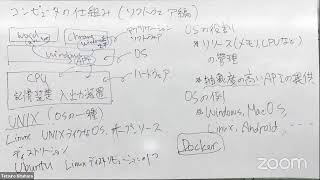 コンピュータの仕組み（ソフトウェア編）
word
Chrome
windows
アプリケーション
ソフトウェア
OS
CPU
記憶装置 入出力装置
ハードウェア
UNIX (OSの一種)
Linux UNIXライクなOS、オープンソース
ディストリビューション
Ubuntu Linuxディストリビューションの1つ
OSの役割
* リソース(メモリ,CPUなど)
の管理
* 抽象度の高いAPIの提供
OSの例
* Windows, MacOS,
Linux, Android, ....
Docker
zoom
Tetsuro Kitahara